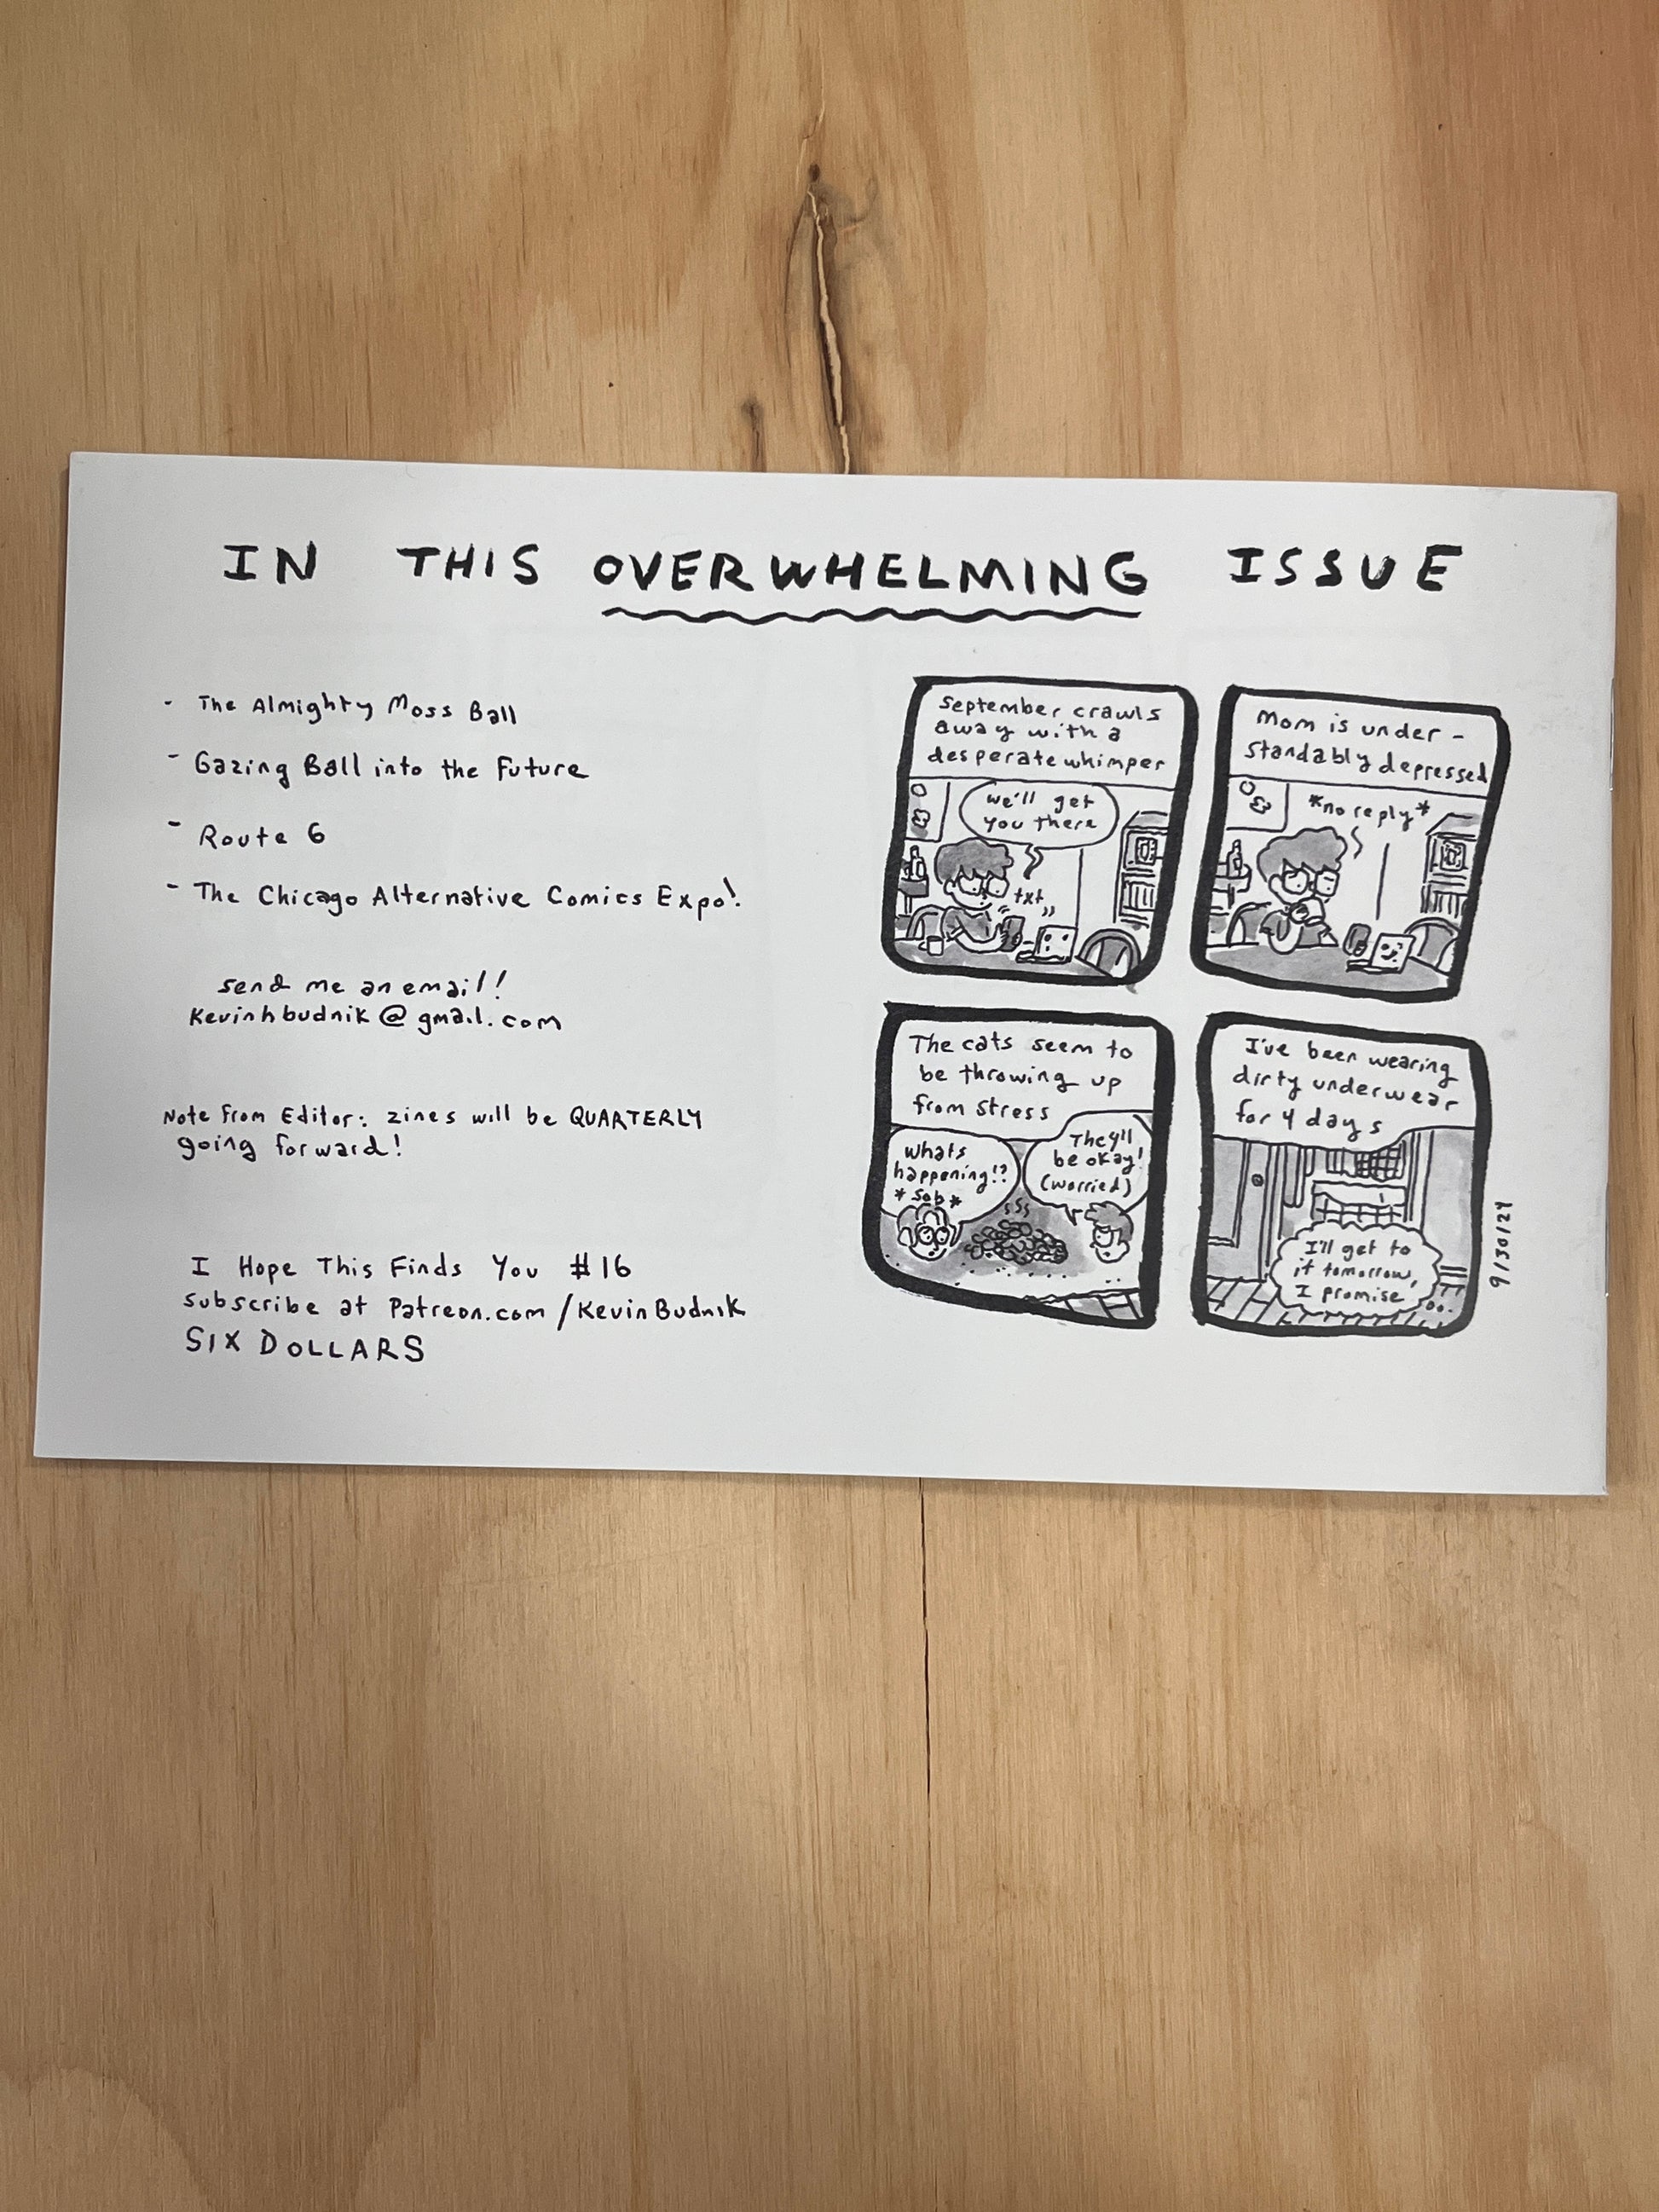 IN THIS OVERWHELMING ISSUE
- The Almighty Moss Ball
- Gazing Ball into the Future
- Route 6
- The Chicago Alternative Comics Expo!
send me an email!
Kevinhbudnik@gmail.com
Note from Editor: zines will be QUARTERLY
going forward!
I Hope This Finds You #16
subscribe at Patreon.com/KevinBudnik
SIX DOLLARS
September crawls
away with a
desperate whimper
we'll get
you there
txt
Mom is under-
standably depressed
*no reply*
The cats seem to
be throwing up
from stress
whats
happening!?
*sob*
They'll
be okay!
(worried)
I've been wearing
dirty underwear
for 4 days
I'll get to
it tomorrow,
I promise
9/30/24